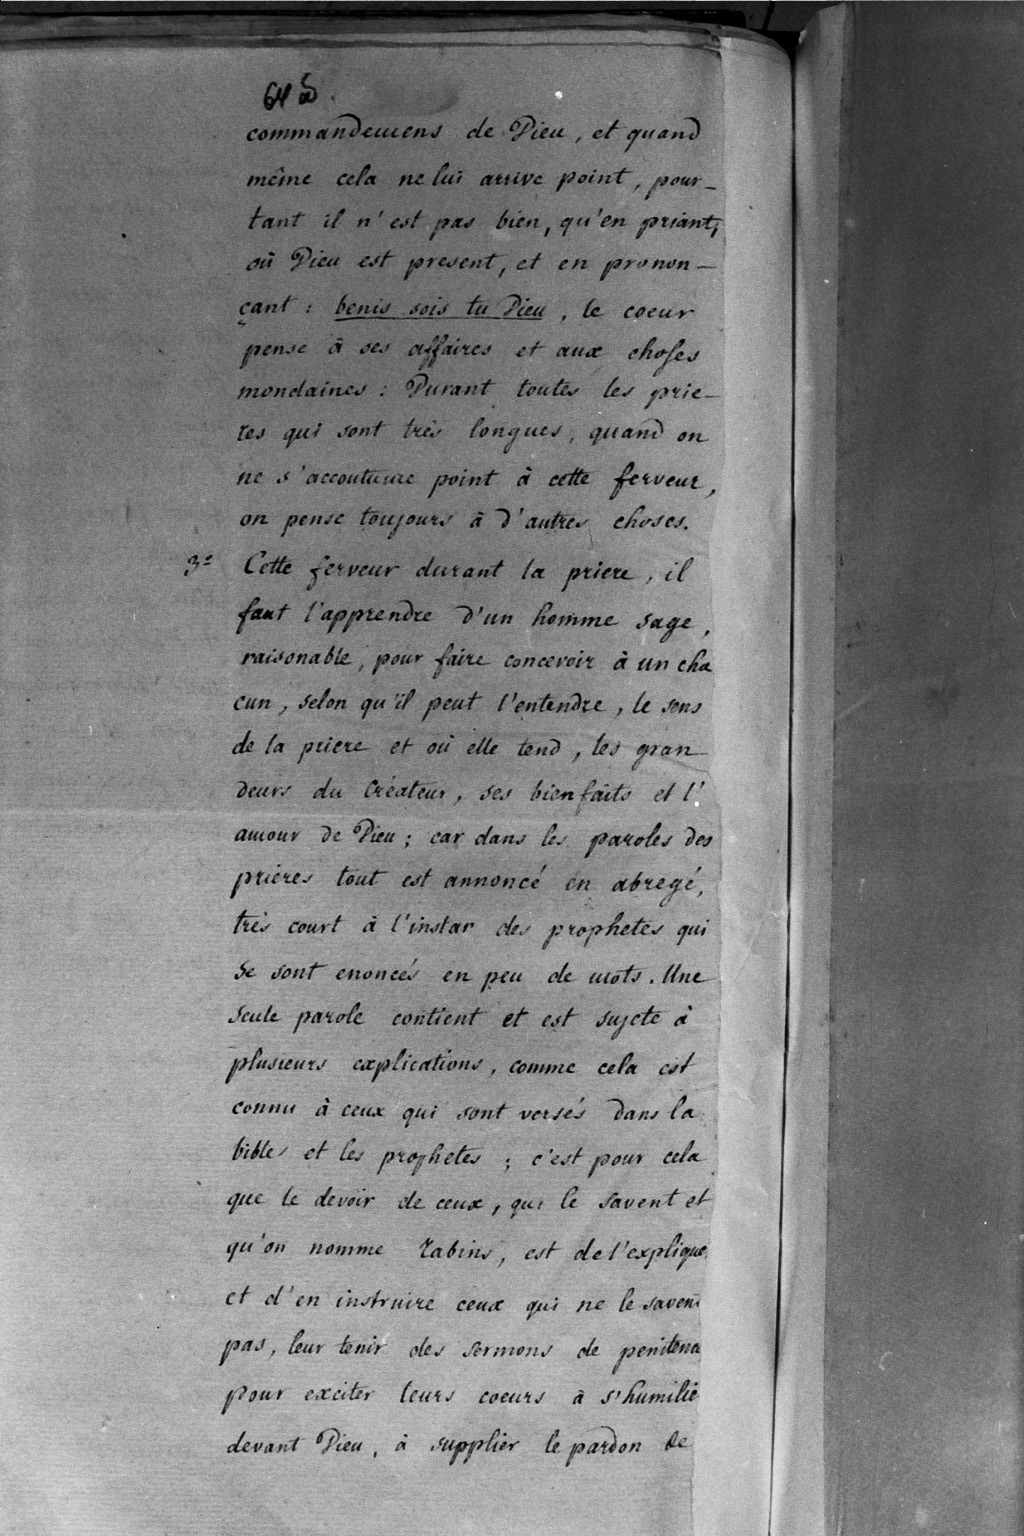 commandemens de Dieu, et quand
même cela ne lui arrive point, pour-
tant il n'est pas bien, qu'en priant,
où Dieu est present, et en pronon-
çant : benis sois tu Dieu, le coeur
pense à ses affaires et aux choses
mondaines : Durant toutes les prie-
res qui sont très longues, quand on
ne s'accoutume point à cette ferveur,
on pense toujours à d'autres choses.
3º Cette ferveur durant la priere, il
faut l'apprendre d'un homme sage,
raisonable, pour faire concevoir à un cha
cun, selon qu'il peut l'entendre, le sens
de la priere et où elle tend, les gran
deurs du Créateur, ses bienfaits et l'
amour de Dieu ; car dans les paroles des
prieres tout est annoncé en abregé,
très court à l'instar des prophetes qui
se sont enoncés en peu de mots. Une
seule parole contient et est sujete à
plusieurs explications, comme cela est
connu à ceux qui sont versés dans la
bible et les prophetes ; c'est pour cela
que le devoir de ceux, qui le savent et
qu'on nomme rabins, est de l'explique
et d'en instruire ceux qui ne le saven
pas, leur tenir des sermons de penitenc
pour exciter leurs coeurs à s'humilie
devant Dieu, à supplier le pardon de